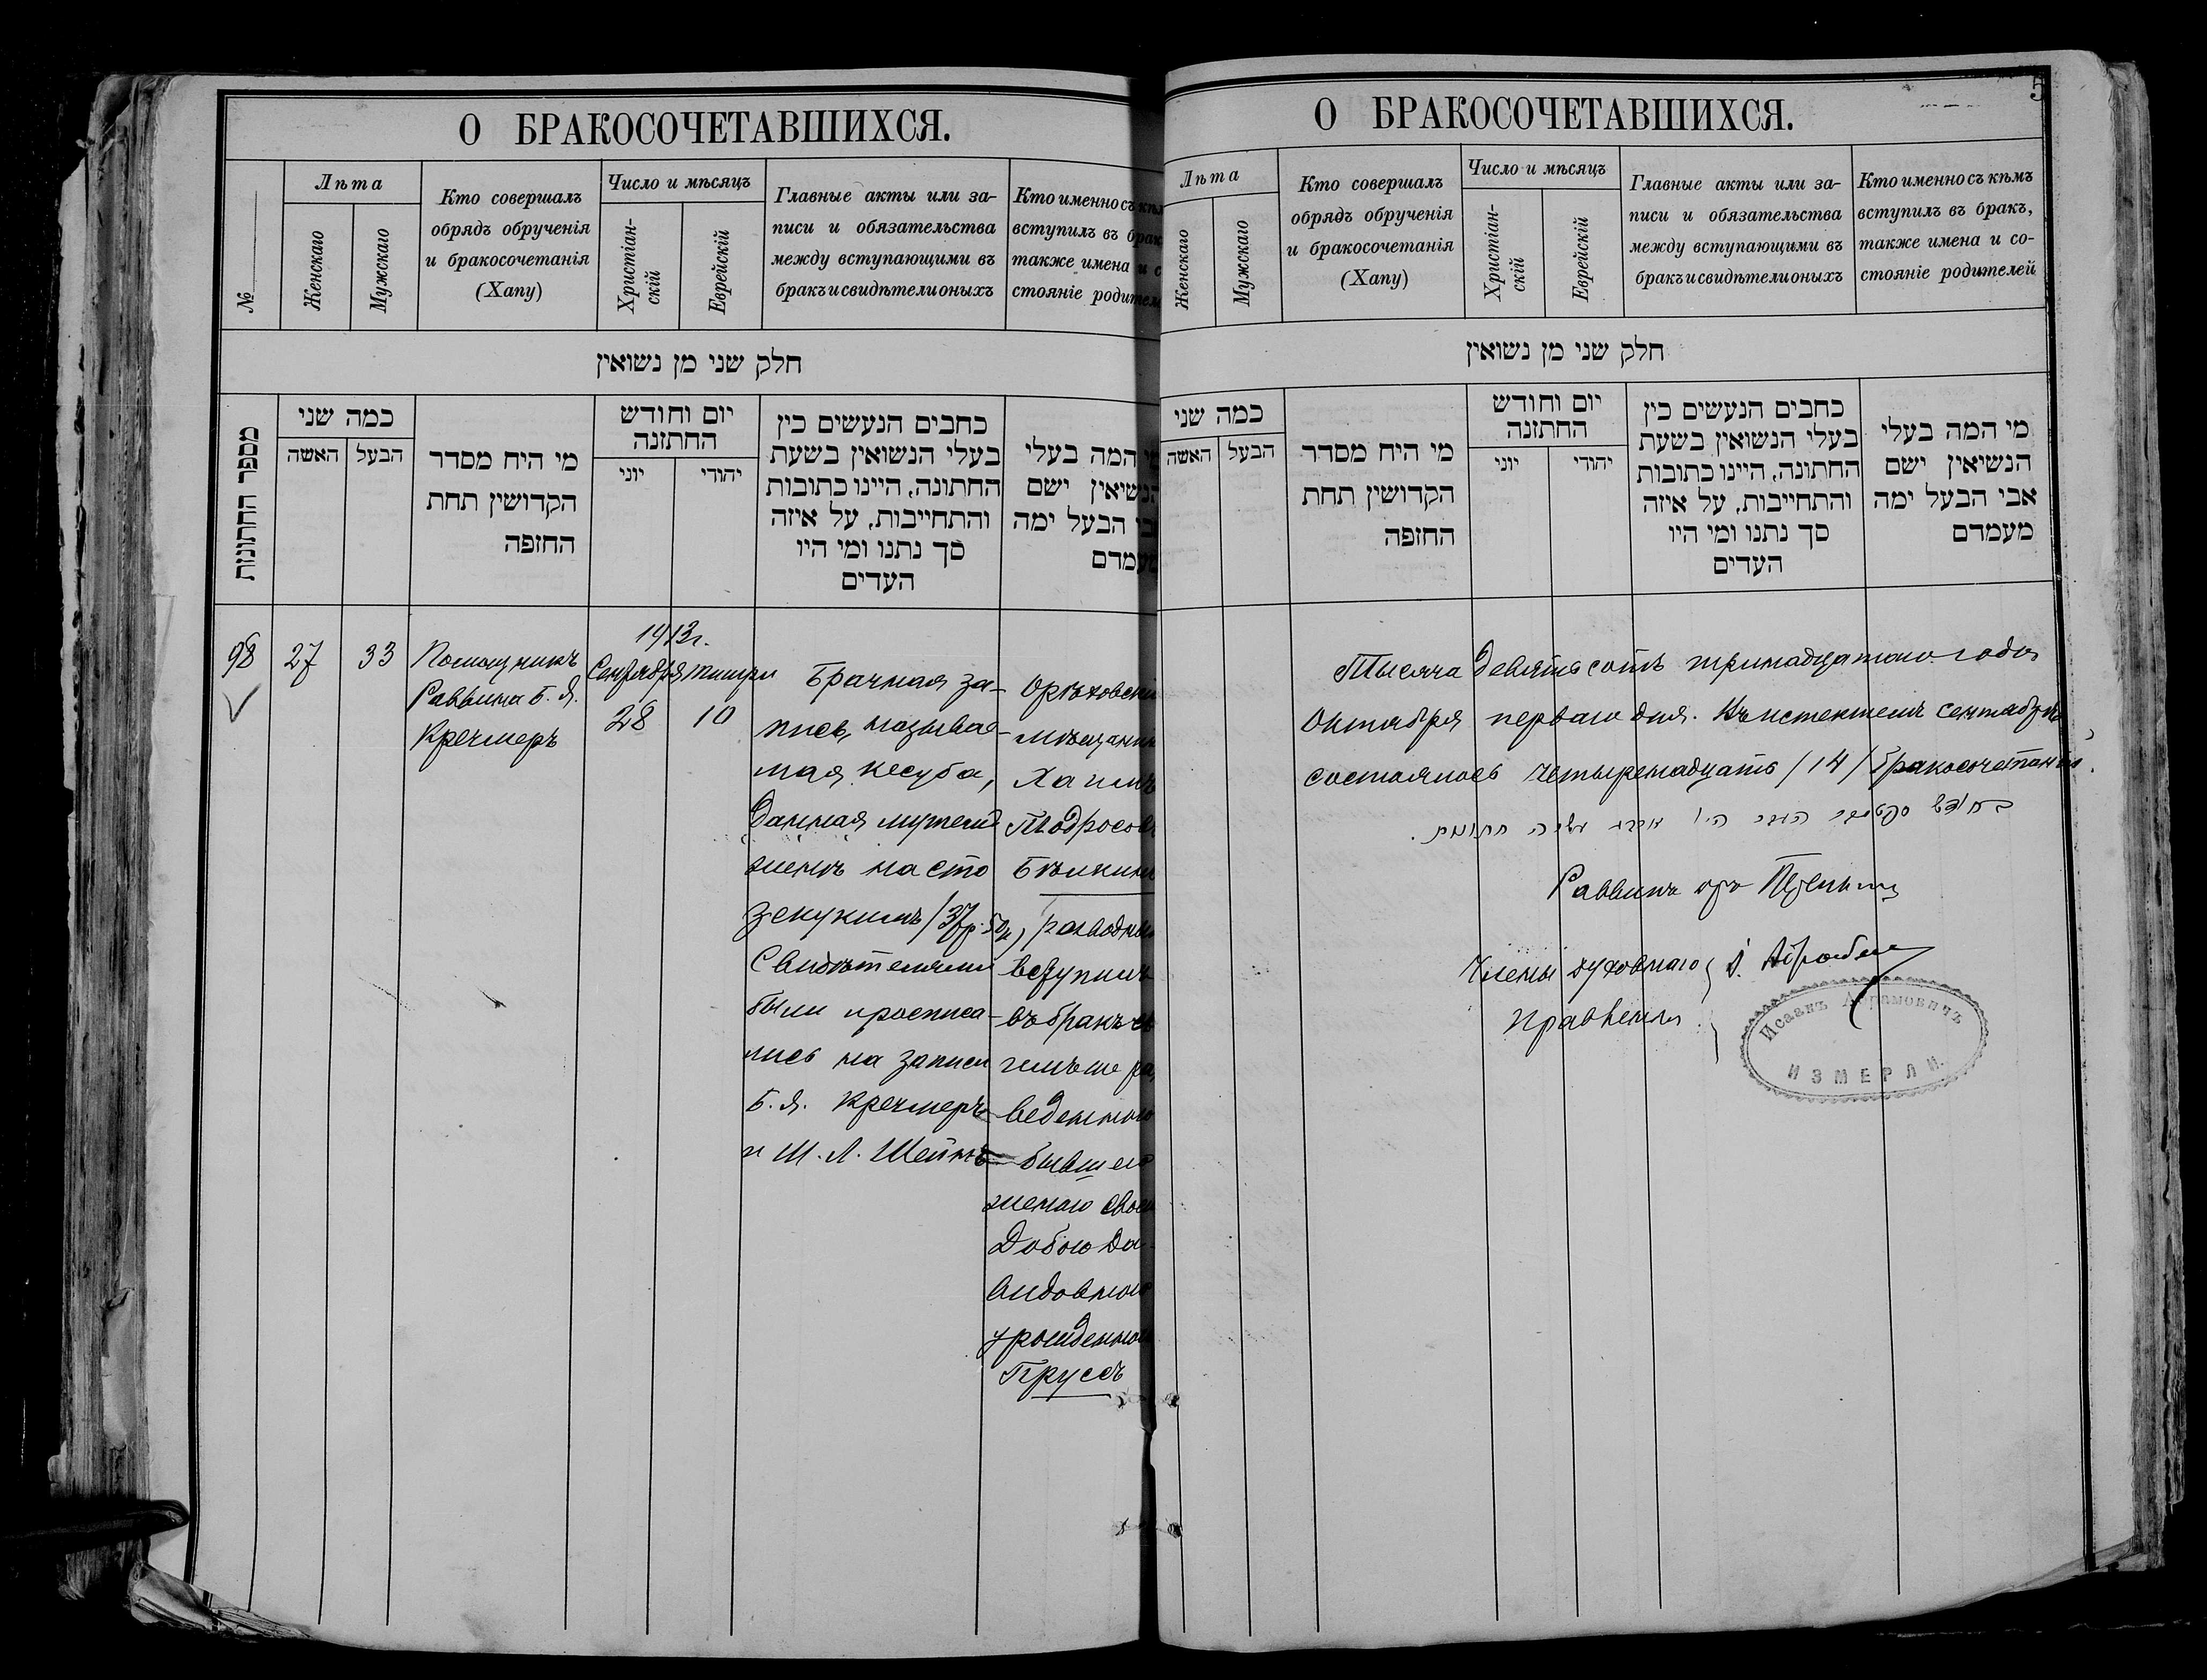 О БРАКОСОЧЕТАВШИХСЯ.
№
Лѣта
Женскаго
Мужскаго
Кто совершалъ
обрядъ обрученія
и бракосочетанія
(Хапу)
Число и мѣсяцъ
Христіан-
скій
Еврейскій
Главные акты или за-
писи и обязательства
между вступающими въ
бракъ и свидѣтели оныхъ
Кто именно съ
вступилъ въ
также имена и
стояніе
חלק שני מן נשואין
מספר החתונות
כמה שני
האשה
הבעל
מי היח מסדר
הקדושין תחת
החזפה
יום וחודש
החתזנה
יוני
יהודי
כחבים הנעשים כין
בעלי הנשואין בשעת
החתונה, היינו כתובות
והתחייבות, על איזה
סך נתנו ומי היו
העדים
המה בעלי
ישם
הבעל ימה
98
27
33
Помощникъ
Раввина Б. Я.
Кречмеръ
1913г.
Сентября
Тишри
28
10
Брачная за-
пись, называе-
мая кесуба,
данная мужемъ
женѣ на сто
зекукимъ /37р. 50к/
Свидѣтелями
были и росписа-
лись на записи
Б. Я. Кречмеръ
и Ш. Л. Шейнъ
Орѣховскій
мѣщанинъ
Хаимъ
Тодросовъ
Бѣлкинъ
разводный
вступилъ
въ бракъ съ
бывшею
женою своею
Добою Да-
видовною
урожденною
Пруссъ
5
О БРАКОСОЧЕТАВШИХСЯ.
Лѣта
Женскаго
Мужскаго
Кто совершалъ
обрядъ обрученія
и бракосочетанія
(Хапу)
Число и мѣсяцъ
Христіан-
скій
Еврейскій
Главные акты или за-
писи и обязательства
между вступающими въ
бракъ и свидѣтели оныхъ
Кто именно съ кѣмъ
вступилъ въ бракъ,
также имена и со-
стояніе родителей
חלק שני מן נשואין
כמה שני
האשה
הבעל
מי היח מסדר
הקדושין תחת
החזפה
יום וחודש
החתזנה
יוני
יהודי
כחבים הנעשים כין
בעלי הנשואין בשעת
החתונה, היינו כתובות
והתחייבות, על איזה
סך נתנו ומי היו
העדים
מי המה בעלי
הנשיאין ישם
אבי הבעל ימה
מעמדם
Тысяча девятьсотъ тринадцатаго года
Октября перваго дня. Въ истекшемъ сентябрѣ
состоялось четырнадцать /14/ бракосочетаній.
Раввинъ
Члены духовнаго
правленія
Исаакъ Абрамовичъ
ИЗМЕРЛИ.